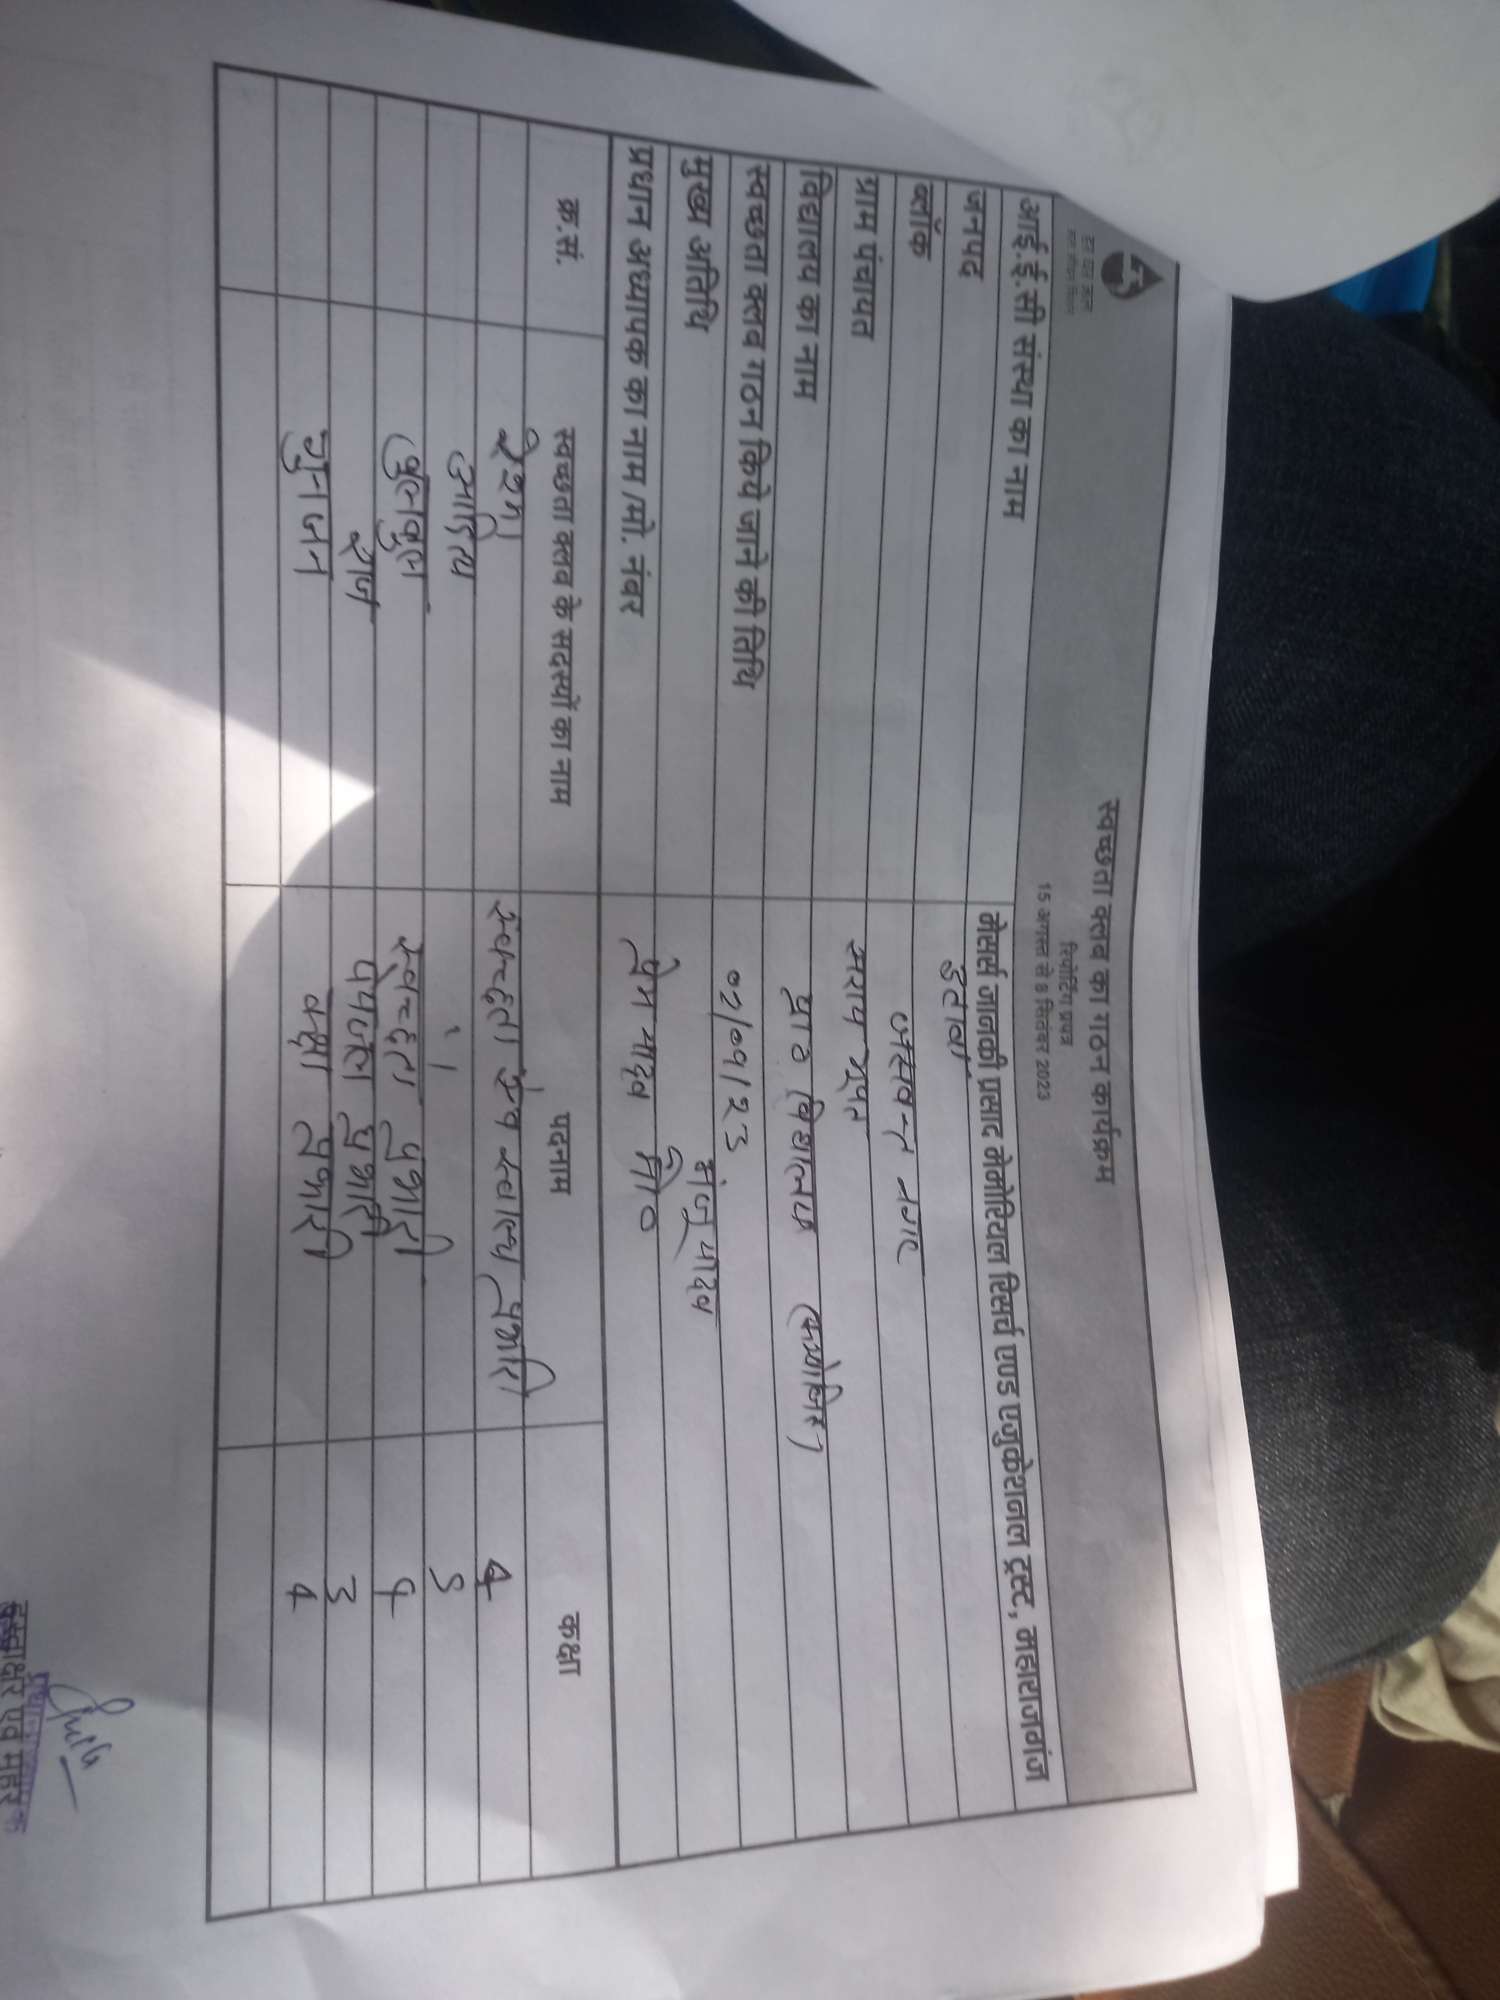 स्वच्छता क्लब का गठन कार्यक्रम
रिपोर्टिंग प्रपत्र
15 अगस्त से 8 सितंबर 2023
आई.ई.सी संस्था का नाम मेसर्स जानकी प्रसाद मेमोरियल रिसर्च एण्ड एजुकेशनल ट्रस्ट, महाराजगंज
जनपद इटावा
ब्लॉक जसवन्त नगर
ग्राम पंचायत सराय भूपत
विद्यालय का नाम प्रा० विद्यालय
स्वच्छता क्लब गठन किये जाने की तिथि ०२/०९/२३
मुख्य अतिथि मंजू यादव
प्रधान अध्यापक का नाम /मो. नंबर प्रेम यादव
क्र.सं. स्वच्छता क्लब के सदस्यों का नाम पदनाम कक्षा
रेशमी स्वच्छता एवं स्वास्थ्य प्रभारी 4
आदित्य 5
बुलबुल स्वच्छता प्रभारी 4
पेयजल प्रभारी 3
गुनजन कक्षा प्रभारी 4
हस्ताक्षर एवं मुहर